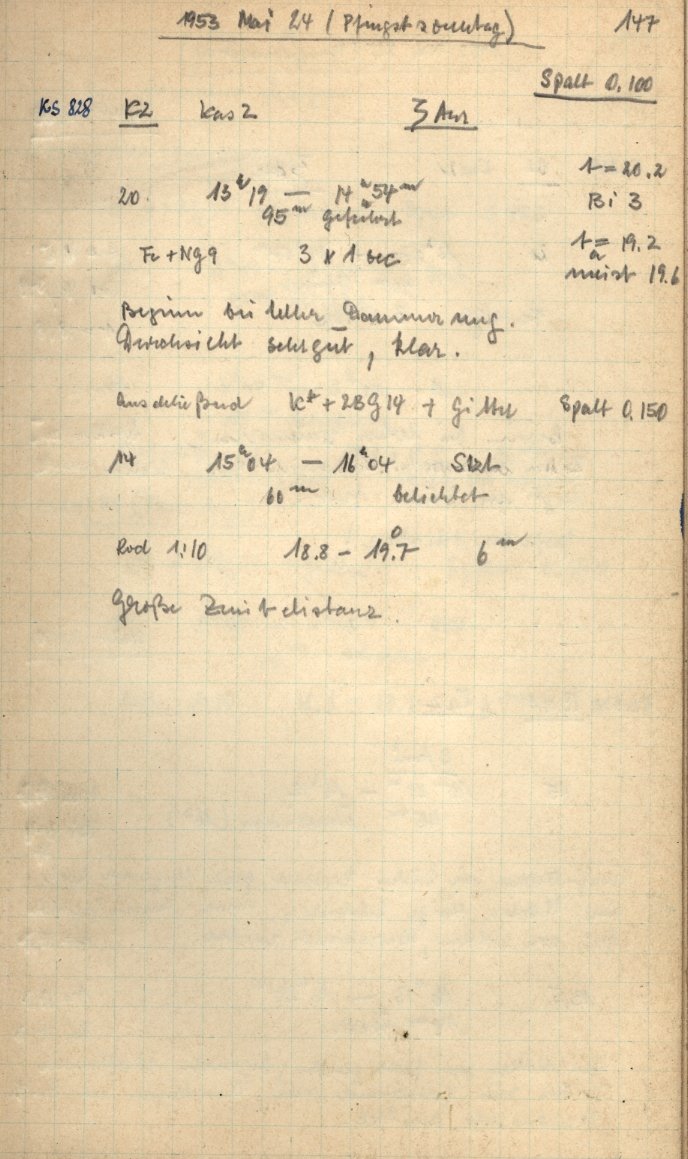 1953 Mai 24 (Pfingstsonntag) 147
Spalt 0.100
KS 828 K2 Kas 2 ζ Aur
t = 20.2
20 13ʰ19 — 14ʰ54ᵐ Bi 3
95ᵐ
t = 19.2
Fe + Ng9 3 x 1 sec
meist 19.6
Beginn bei heller Dämmerung.
Durchsicht sehr gut, klar.
Anschließend + 2BG14 + Gitter Spalt 0.150
14 15ʰ04 — 16ʰ04
60ᵐ belichtet
1:10 18.8 – 19.7 6ᵐ
Große Zenitdistanz.